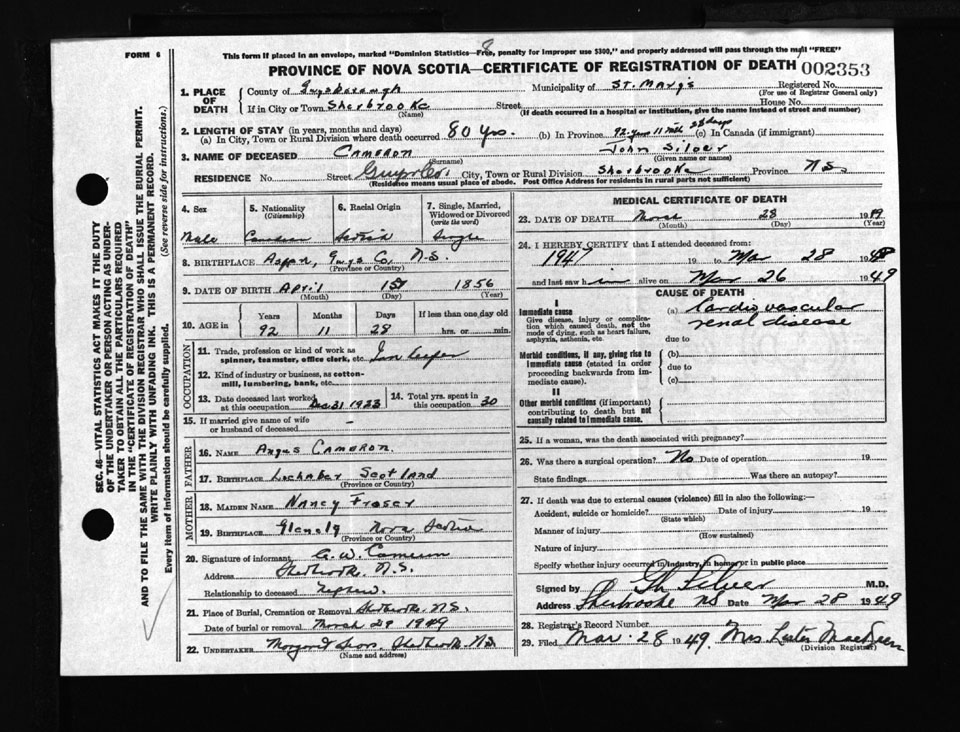 FORM 6
This form if placed in an envelope, marked "Dominion Statistics—Free, penalty for improper use $300," and properly addressed will pass through the mail "FREE"
PROVINCE OF NOVA SCOTIA—CERTIFICATE OF REGISTRATION OF DEATH 002353
SEC. 46—VITAL STATISTICS ACT MAKES IT THE DUTY
OF THE UNDERTAKER OR PERSON ACTING AS UNDER-
TAKER TO OBTAIN ALL THE PARTICULARS REQUIRED
IN THE "CERTIFICATE OF REGISTRATION OF DEATH"
AND TO FILE THE SAME WITH THE DIVISION REGISTRAR WHO SHALL ISSUE THE BURIAL PERMIT.
WRITE PLAINLY WITH UNFADING INK. THIS IS A PERMANENT RECORD.
Every item of information should be carefully supplied. (See reverse side for instructions.)
1. PLACE OF DEATH
County of Guysborough Municipality of ST. Mary's Registered No.
(For use of Registrar General only)
If in City or Town Sherbrooke Street House No.
(Name) (If death occurred in a hospital or institution, give the name instead of street and number)
2. LENGTH OF STAY (in years, months and days)
(a) In City, Town or Rural Division where death occurred 80 yrs. (b) In Province 92 years 11 mths 28 days (c) In Canada (if immigrant)
3. NAME OF DECEASED Cameron John Silver
(Surname) (Given name or names)
RESIDENCE No. Street Guys Co. City, Town or Rural Division Sherbrooke Province N.S.
(Residence means usual place of abode. Post Office Address for residents in rural parts not sufficient)
4. Sex 5. Nationality (Citizenship) 6. Racial Origin 7. Single, Married, Widowed or Divorced (write the word)
Male Canadian Scotish Single
8. BIRTHPLACE Aspen, Guys Co, N.S.
(Province or Country)
9. DATE OF BIRTH April 1st 1856
(Month) (Day) (Year)
10. AGE in Years Months Days If less than one day old
92 11 28 hrs. or min.
OCCUPATION
11. Trade, profession or kind of work as
spinner, teamster, office clerk, etc.
12. Kind of industry or business, as cotton-
mill, lumbering, bank, etc.
13. Date deceased last worked at this occupation Dec 31 1933 14. Total yrs. spent in this occupation 30
15. If married give name of wife
or husband of deceased —
FATHER
16. NAME Angus Cameron.
17. BIRTHPLACE Lochaber Scotland
(Province or Country)
MOTHER
18. MAIDEN NAME Nancy Fraser
19. BIRTHPLACE Glenelg Nova Scotia
(Province or Country)
20. Signature of informant G. W. Cameron
Address Sherbrooke. N.S.
Relationship to deceased Nephew.
21. Place of Burial, Cremation or Removal Sherbrooke. N.S.
Date of burial or removal March 29 1949
22. UNDERTAKER Sherbrooke N.S.
(Name and address)
MEDICAL CERTIFICATE OF DEATH
23. DATE OF DEATH March 28 1949
(Month) (Day)
24. I HEREBY CERTIFY that I attended deceased from:
1947 19 to Mar 28 1949
and last saw him alive on Mar 26 1949
CAUSE OF DEATH
I
Immediate cause
Give disease, injury or complica-
tion which caused death, not the
mode of dying, such as heart failure,
asphyxia, asthenia, etc.
(a) Cardio vascular
renal disease
due to
Morbid conditions, if any, giving rise to
immediate cause (stated in order
proceeding backwards from im-
mediate cause).
(b)
due to
(c)
II
Other morbid conditions (if important)
contributing to death but not
causally related to immediate cause.
25. If a woman, was the death associated with pregnancy?
26. Was there a surgical operation? No Date of operation 19
State findings Was there an autopsy?
27. If death was due to external causes (violence) fill in also the following:—
Accident, suicide or homicide? Date of injury 19
(State which)
Manner of injury
(How sustained)
Nature of injury
Specify whether injury occurred in industry, in home or in public place
Signed by M.D.
Address Sherbrooke NS Date Mar 28 1949
28. Registrar's Record Number
29. Filed Mar. 28 1949. Mrs Lester
(Division Registrar)